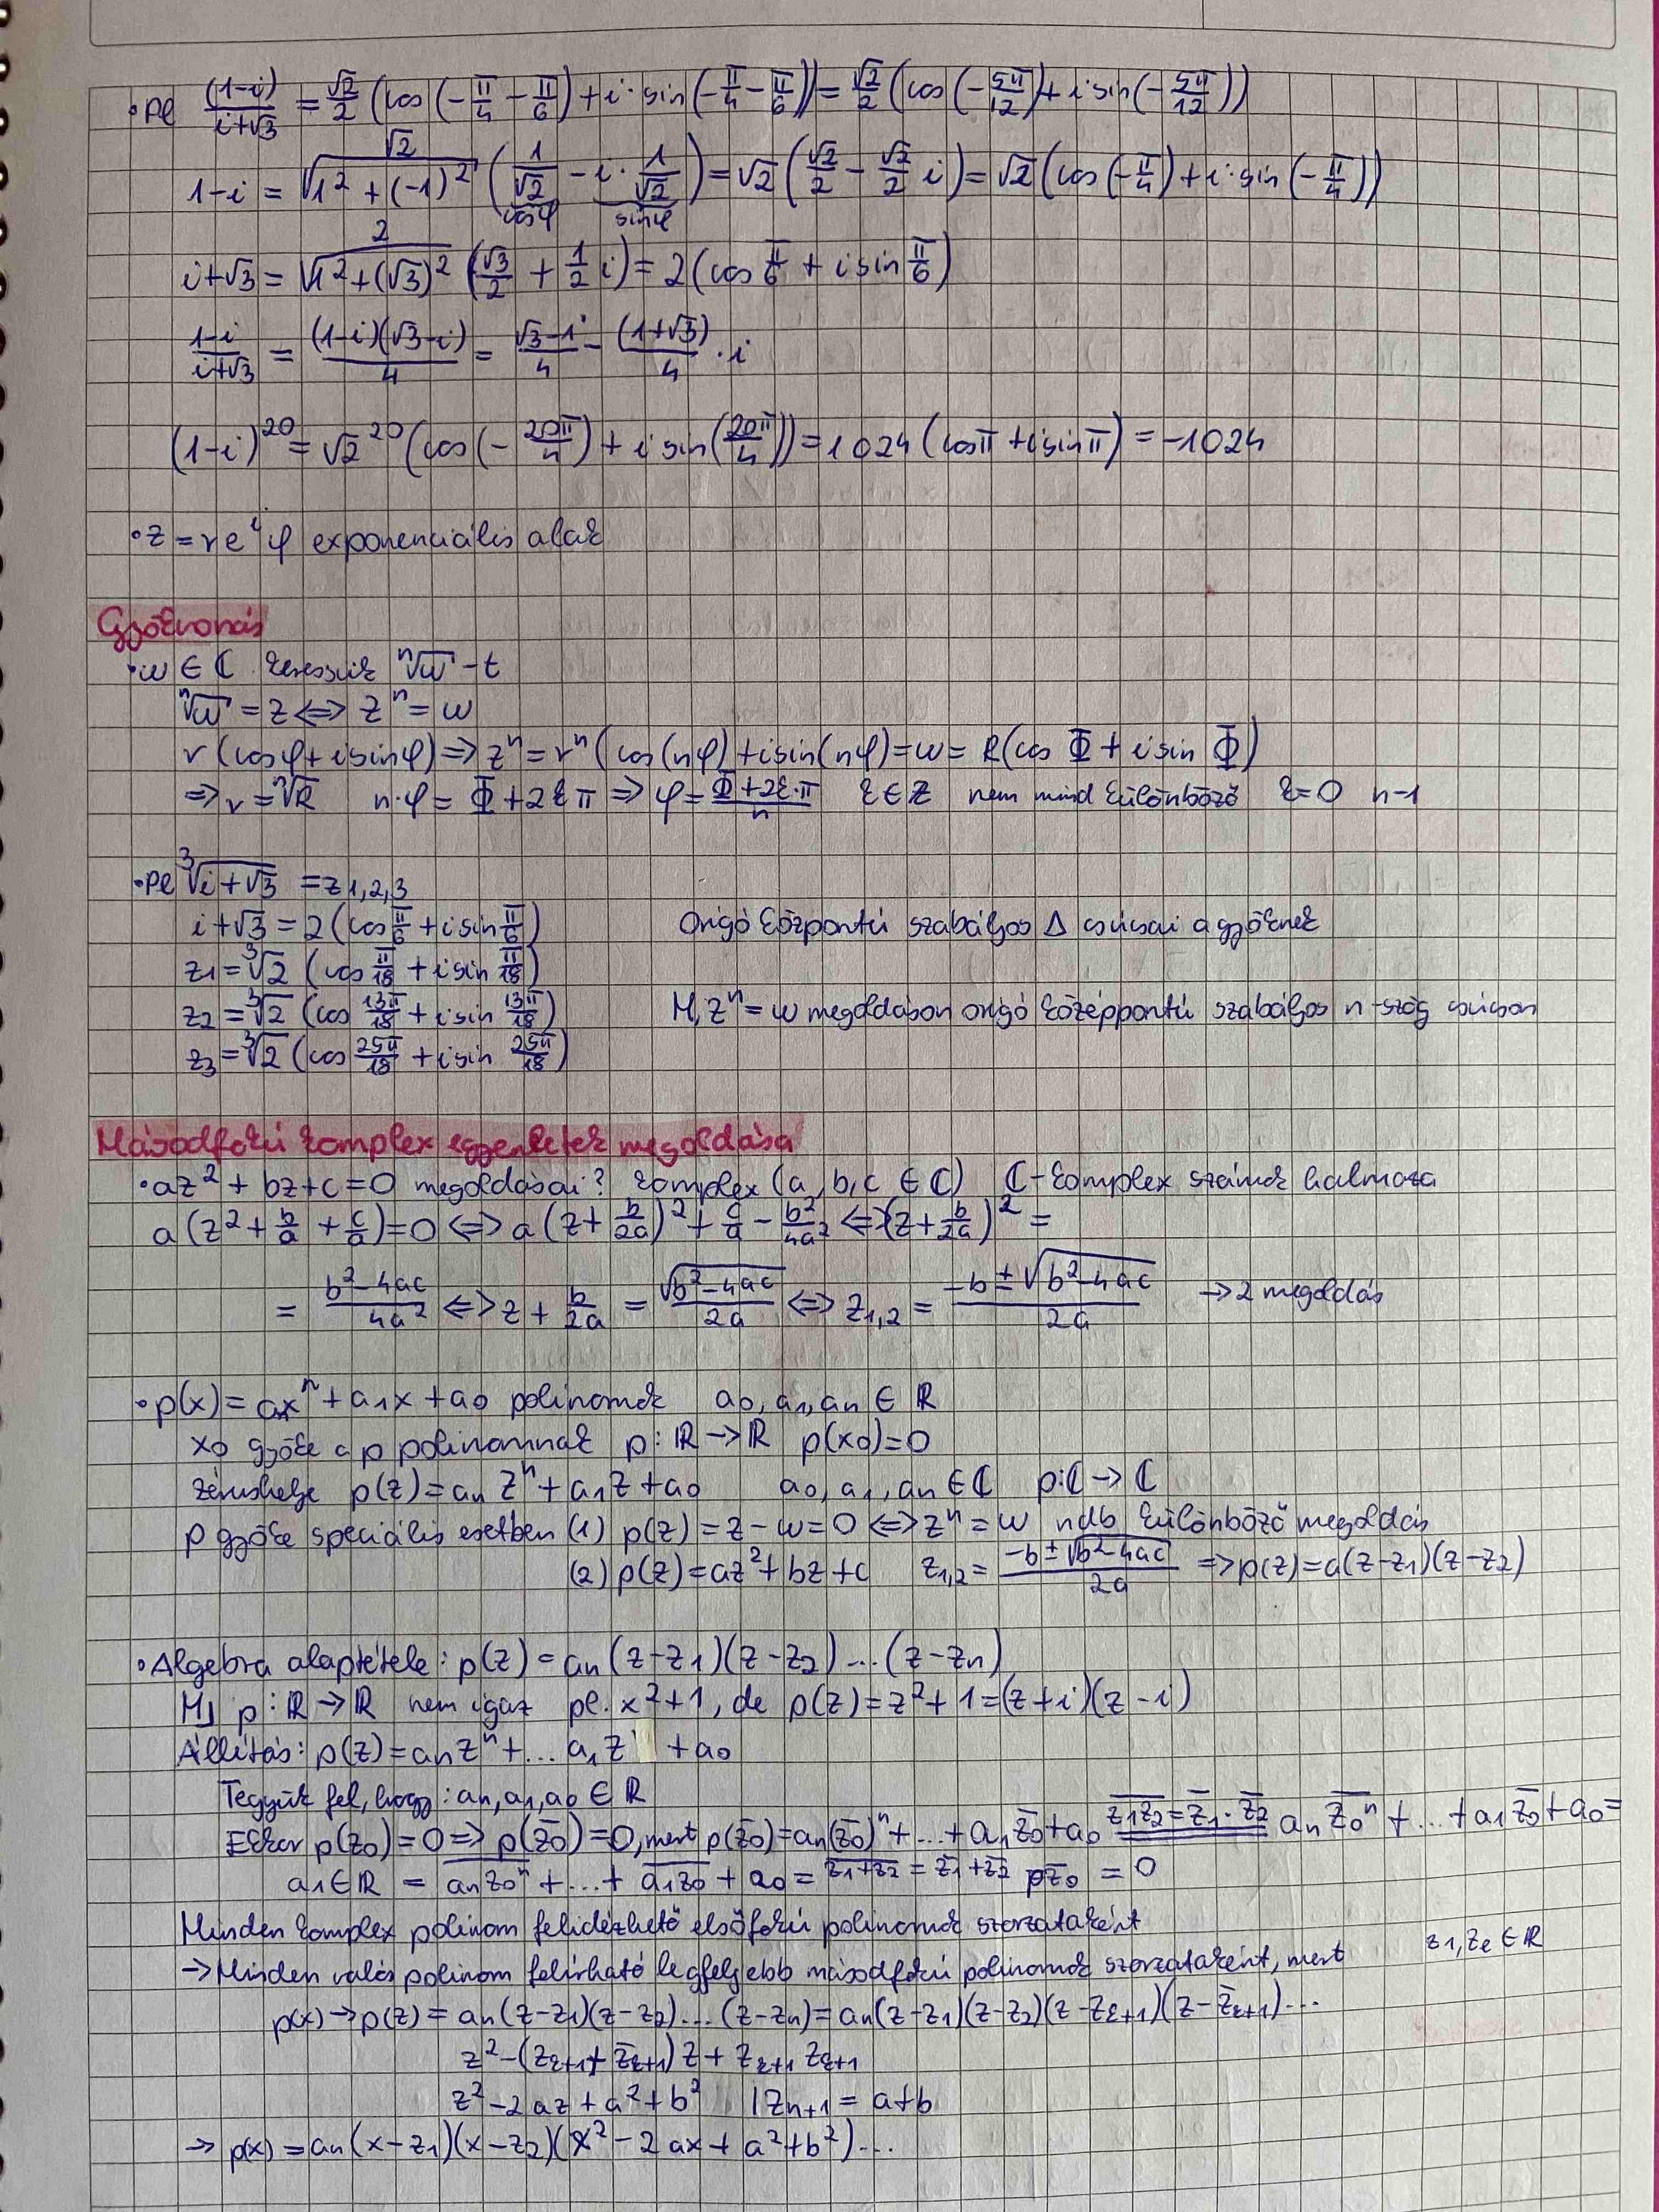 •Pl (1-i)/(i+√3) = √2/2 (cos(-π/4 - π/6) + i·sin(-π/4 - π/6)) = √2/2 (cos(-5π/12) + i sin(-5π/12))
1-i = √(1² + (-1)²) (1/√2 - i · 1/√2) = √2 (√2/2 - √2/2 i) = √2 (cos(-π/4) + i·sin(-π/4))
√2 cosφ sinφ
i+√3 = √(1² + (√3)²) (√3/2 + 1/2 i) = 2 (cos π/6 + i sin π/6)
2
(1-i)/(i+√3) = (1-i)(√3-i)/4 = (√3-1)/4 - (1+√3)/4 · i
(1-i)²⁰ = √2²⁰ (cos(-20π/4) + i sin(20π/4)) = 1024 (cosπ + i sinπ) = -1024
•z = re^iφ exponenciális alak
Gyökvonás
•w ∈ ℂ keressük ⁿ√w -t
ⁿ√w = z ⇔ zⁿ = w
r (cosφ + i sinφ) ⇒ zⁿ = rⁿ (cos(nφ) + i sin(nφ) = w = R(cos Φ + i sin Φ)
⇒ r = ⁿ√R n·φ = Φ + 2kπ ⇒ φ = (Φ + 2k·π)/n k ∈ ℤ nem mind különböző k=0 n-1
•Pl ³√(i+√3) = z1,2,3
i+√3 = 2 (cos π/6 + i sin π/6) Origó központú szabályos Δ csúcsai a gyöknek
z1 = ³√2 (cos π/18 + i sin π/18)
z2 = ³√2 (cos 13π/18 + i sin 13π/18) Mj zⁿ = w megoldáson origó középpontú szabályos n-szög csúcson
z3 = ³√2 (cos 25π/18 + i sin 25π/18)
Másodfokú komplex egyenletek megoldása
•az² + bz + c = 0 megoldásai? komplex (a, b, c ∈ ℂ) ℂ-komplex számok halmaza
a (z² + b/a + c/a) = 0 ⇔ a (z + b/2a)² + c/a - b²/4a² ⇔ (z + b/2a)² =
= (b²-4ac)/4a² ⇔ z + b/2a = √(b²-4ac)/2a ⇔ z1,2 = (-b ± √(b²-4ac))/2a → 2 megoldás
•p(x) = axⁿ + a₁x + a₀ polinomok a₀, a₁, an ∈ ℝ
x₀ gyöke a p polinomnak p: ℝ → ℝ p(x₀) = 0
zérushelye p(z) = an zⁿ + a₁z + a₀ a₀, a₁, an ∈ ℂ p: ℂ → ℂ
p gyöke speciális esetben (1) p(z) = z - w = 0 ⇔ zⁿ = w ndb különböző megoldás
(2) p(z) = az² + bz + c z1,2 = (-b ± √(b²-4ac))/2a ⇒ p(z) = a(z-z₁)(z-z₂)
•Algebra alaptétele: p(z) = an (z-z₁)(z-z₂)...(z-zn)
Mj p: ℝ → ℝ nem igaz pl. x²+1, de p(z) = z² + 1 = (z+i)(z-i)
Állítás: p(z) = anzⁿ + ... a₁z + a₀
Tegyük fel, hogy: an, a₁, a₀ ∈ ℝ
Ekkor p(z₀) = 0 ⇒ p(z̄₀) = 0, mert p(z̄₀) = an(z̄₀)ⁿ + ... + a₁z̄₀ + a₀ \overline{z₁z₂} = z̄₁ · z̄₂ an \overline{z₀ⁿ} + ... + a₁z̄₀ + a₀ =
a₁ ∈ ℝ = \overline{anz₀ⁿ} + ... + \overline{a₁z₀} + a₀ = \overline{z₁+z₂} = z̄₁ + z̄₂ \overline{pz₀} = 0
Minden komplex polinom felidézhető elsőfokú polinomok szorzataként
→ Minden valós polinom felírható legfeljebb másodfokú polinomok szorzataként, mert z₁, zₖ ∈ ℝ
p(x) → p(z) = an (z-z₁)(z-z₂)...(z-zn) = an(z-z₁)(z-z₂)(z-zₖ₊₁)(z-z̄ₖ₊₁)...
z² - (zₖ₊₁ + z̄ₖ₊₁) z + zₖ₊₁ zₖ₊₁
z² - 2az + a² + b² | zn+1 = a+b
→ p(x) = an (x-z₁)(x-z₂)(x² - 2ax + a² + b²)...